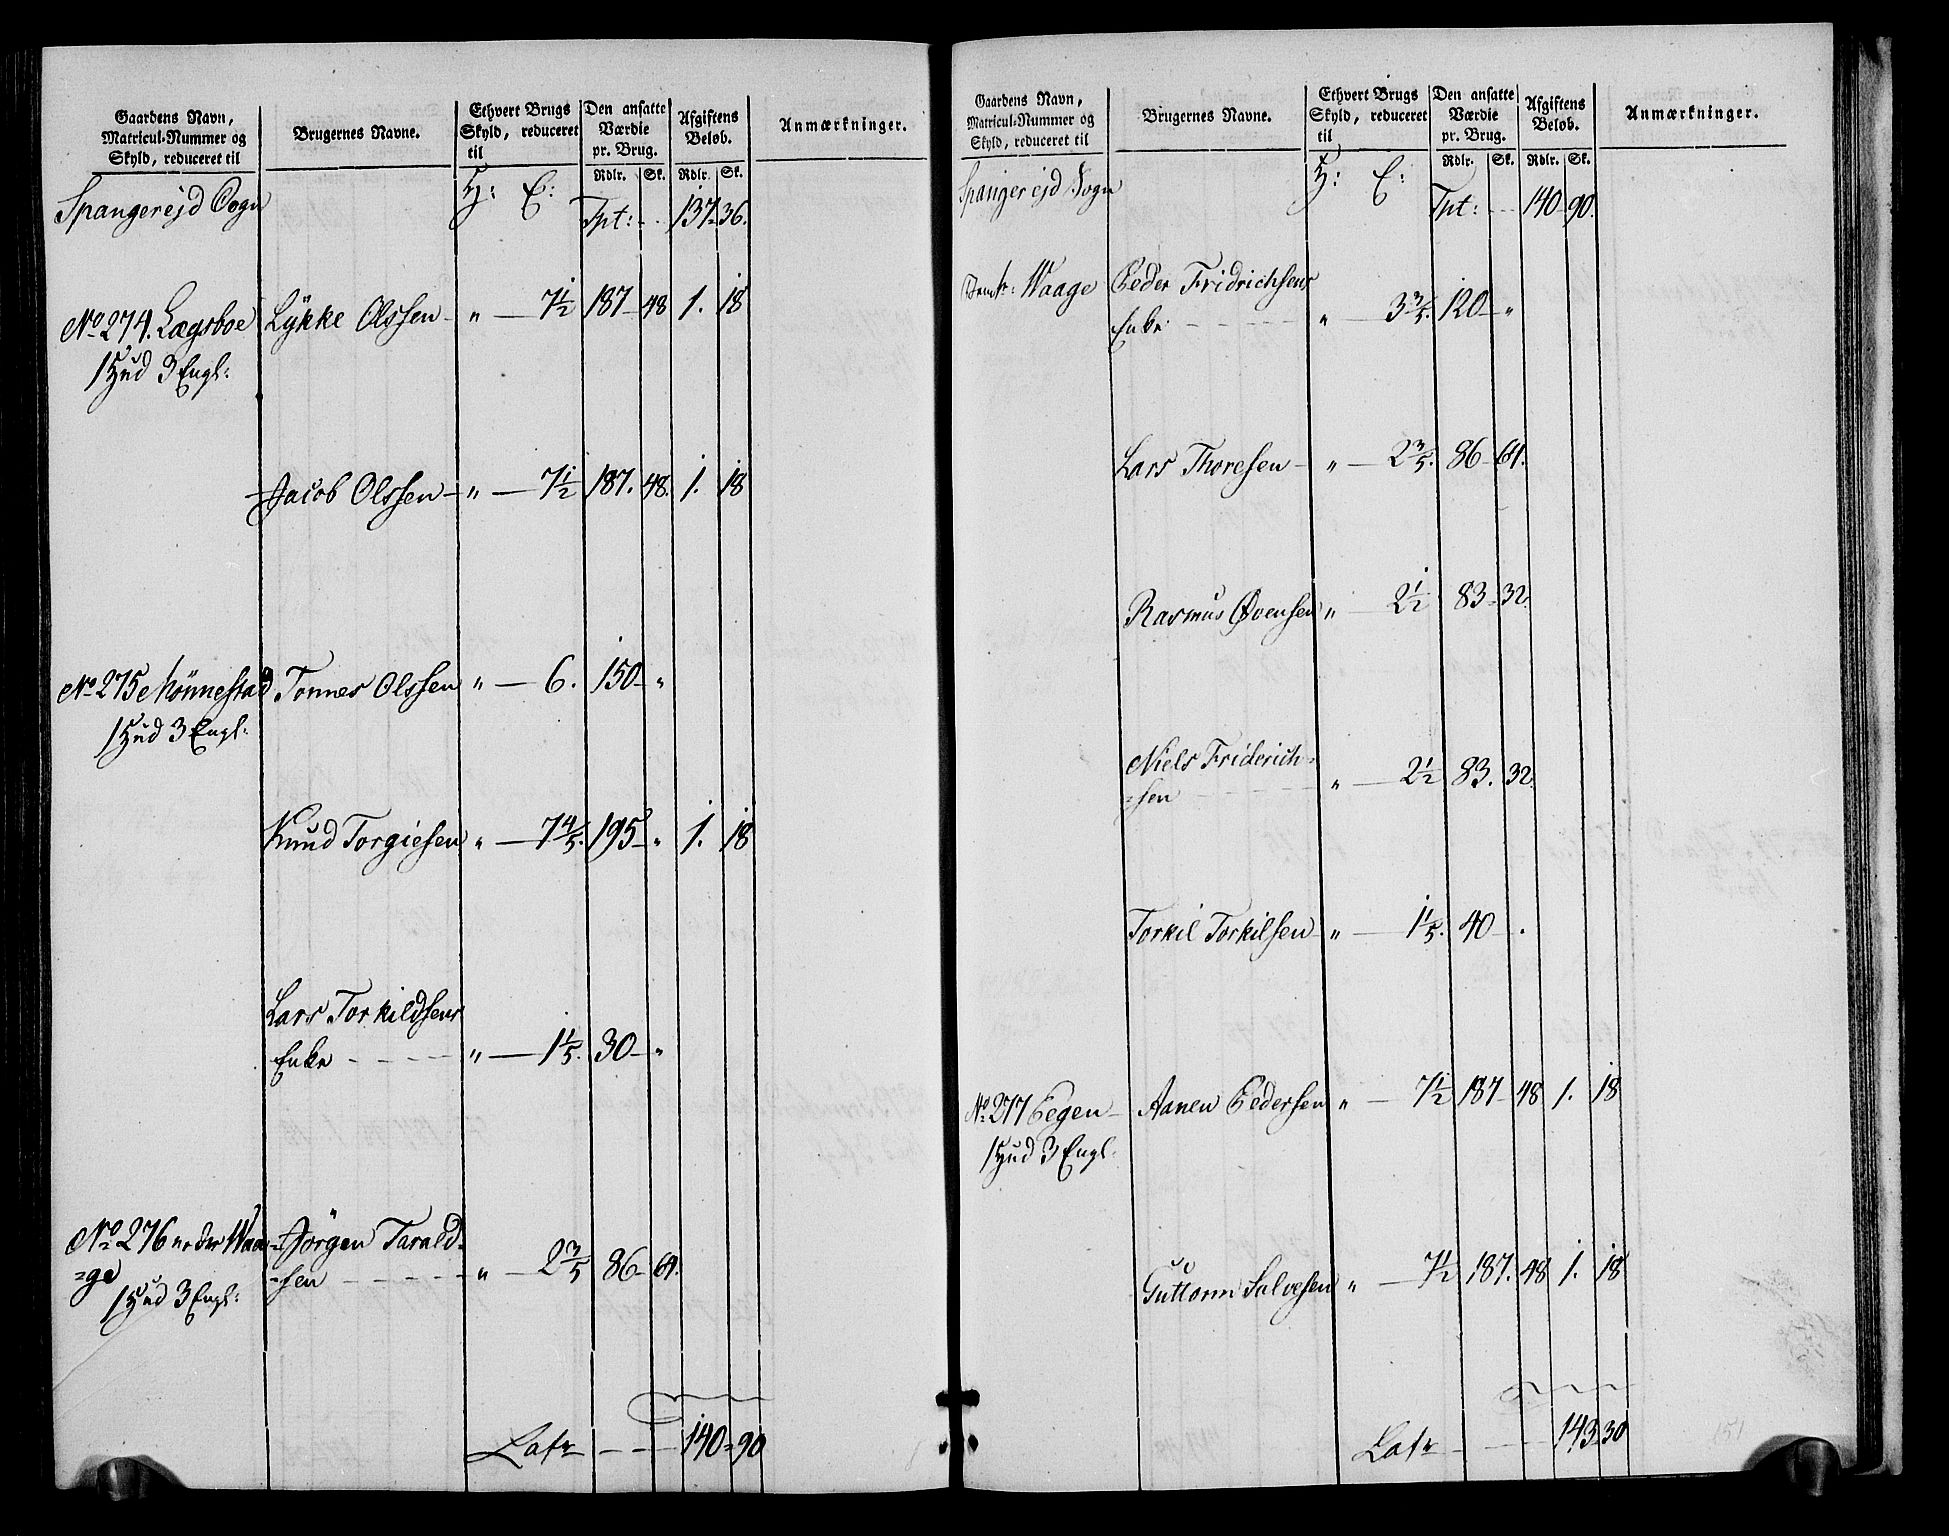 Gaardens Navn,
Matricul-Nummer og
Skyld, reduceret til
Brugernes Navne.
Ethvert Brugs
Skyld, reduceret
til
Den ansatte
Værdie
pr. Brug.
Rdlr. Sk.
Afgiftens
Beløb.
Rdlr. Sk.
Anmærkninger.
Spangerejd Sogn H: E: Tpt: 137 36.
No 274. Lægsboe Lykke Olssen „ 7½ 187 48 1. 18
1 Hud 3 Engl:
Jacob Olssen „ 7½ 187. 48. 1. 18
No 275 Mønnestad Tønnes Olssen „ 6. 150 „
1 Hud 3 Engl:
Knud Torgiesen „ 7⅘. 195 „ 1. 18
Lars Torkildsens
Enke „ 1⅕. 30 „
No 276 Waa= Jørgen Tarald=
=ge =sen „ 2⅗ 86 64.
1 Hud 3 Engl:
Latr 140 = 90
Gaardens Navn,
Matricul-Nummer og
Skyld, reduceret til
Brugernes Navne.
Ethvert Brugs
Skyld, reduceret
til
Den ansatte
Værdie
pr. Brug.
Rdlr. Sk.
Afgiftens
Beløb.
Rdlr. Sk.
Anmærkninger.
Spangerejd Sogn H: E: Tpt: 140 90.
Waage Peder Fridrichsens
Enke „ 3⅗. 120 „
Lars Thoresen „ 2⅗. 86 64.
Rasmus Øvensen „ 2½ 83 32.
Niels Friderich=
=sen „ 2½ 83. 32.
Torkil Torkilsen „ 1⅕. 40 .
No 277 Eegen Aanen Pedersen „ 7½ 187 48 1. 18
1 Hud 3 Engl:
Guttorm Salvesen „ 7½ 187. 48 1. 18
Latr 143 30
151